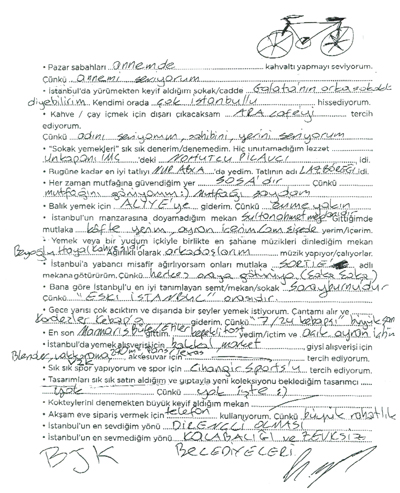 • Pazar sabahları annemde kahvaltı yapmayı seviyorum.
Çünkü annemi seviyorum
• İstanbul'da yürümekten keyif aldığım sokak/cadde Galata'nın arka sokakları
diyebilirim. Kendimi orada çok İstanbullu hissediyorum.
• Kahve / çay içmek için dışarı çıkacaksam ARA cafeyi tercih
ediyorum.
Çünkü adını seviyorum, sahibini, yerini seviyorum
• "Sokak yemekleri" sık sık denerim/denemedim. Hiç unutamadığım lezzet
unkapanı İMÇ 'deki Nohutcu Pilavcı idi.
• Bugüne kadar en iyi tatlıyı NUR ABLA'da yedim. Tatlının adı LAZ BÖREĞİ idi.
• Her zaman mutfağına güvendiğim yer SOSA'dır Çünkü
mutfağını görüyorum :) Mutfağı saydam
• Balık yemek için ALİYE'ye giderim. Çünkü Evime yakın
• İstanbul'un manzarasına doyamadığım mekan Sultanahmet Gittiğimde
mutlaka köfte yerim, ayran içerim yerim/içerim.
• Yemek veya bir yudum içkiyle birlikte en şahane müzikleri dinlediğim mekan
Beyoğlu Hayal Kahvesidir. Ağırlıklı olarak arkadaşlarım müzik yapıyor/çalıyorlar.
• İstanbul'a yabancı misafir ağırlıyorsam onları mutlaka SORTIE adlı
mekana götürürüm. Çünkü herkes oraya götürüyo (şaka şaka)
• Bana göre İstanbul'u en iyi tanımlayan semt/mekan/sokak Sarayburnudur
Çünkü "ESKİ İSTANBUL" orasıdır.
• Gece yarısı çok acıktım ve dışarıda bir şeyler yemek istiyorum. Çantamı alır ve
Kardeşler Kebap'a giderim. Çünkü 7/24 kebapçı
• En son gittim. yedim/içtim ve açık ayran için
• İstanbul'da yemek alışverişi için bakkal, market giysi alışverişi için
aksesuvar için tercih ederim.
• Sık sık spor yapıyorum ve spor için Cihangir Sports'u tercih ediyorum.
• Tasarımları sık sık satın aldığım ve gıptayla yeni koleksiyonu beklediğim tasarımcı
yok Çünkü yok işte :)
• Kokteylerini denemekten büyük keyif aldığım mekan
• Akşam eve sipariş vermek için telefon kullanıyorum. Çünkü büyük rahatlık
• İstanbul'un en sevdiğim yönü DİRENÇLİ OLMASI
• İstanbul'un en sevmediğim yönü KALABALIĞI ve ZEVKSİZ
BELEDİYELERİ
BJK